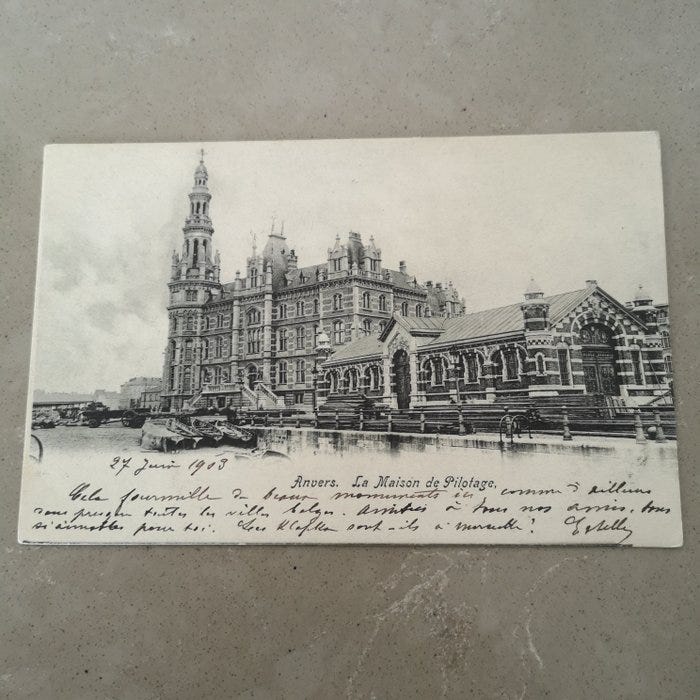 27 Juin 1903
Anvers. La Maison de Pilotage.
Cela fourmille de beaux monuments ici comme d'ailleurs
dans presque toutes les villes belges. Amitiés à tous nos amis, tous
si aimables pour toi. Les sont-ils à ? Estelle